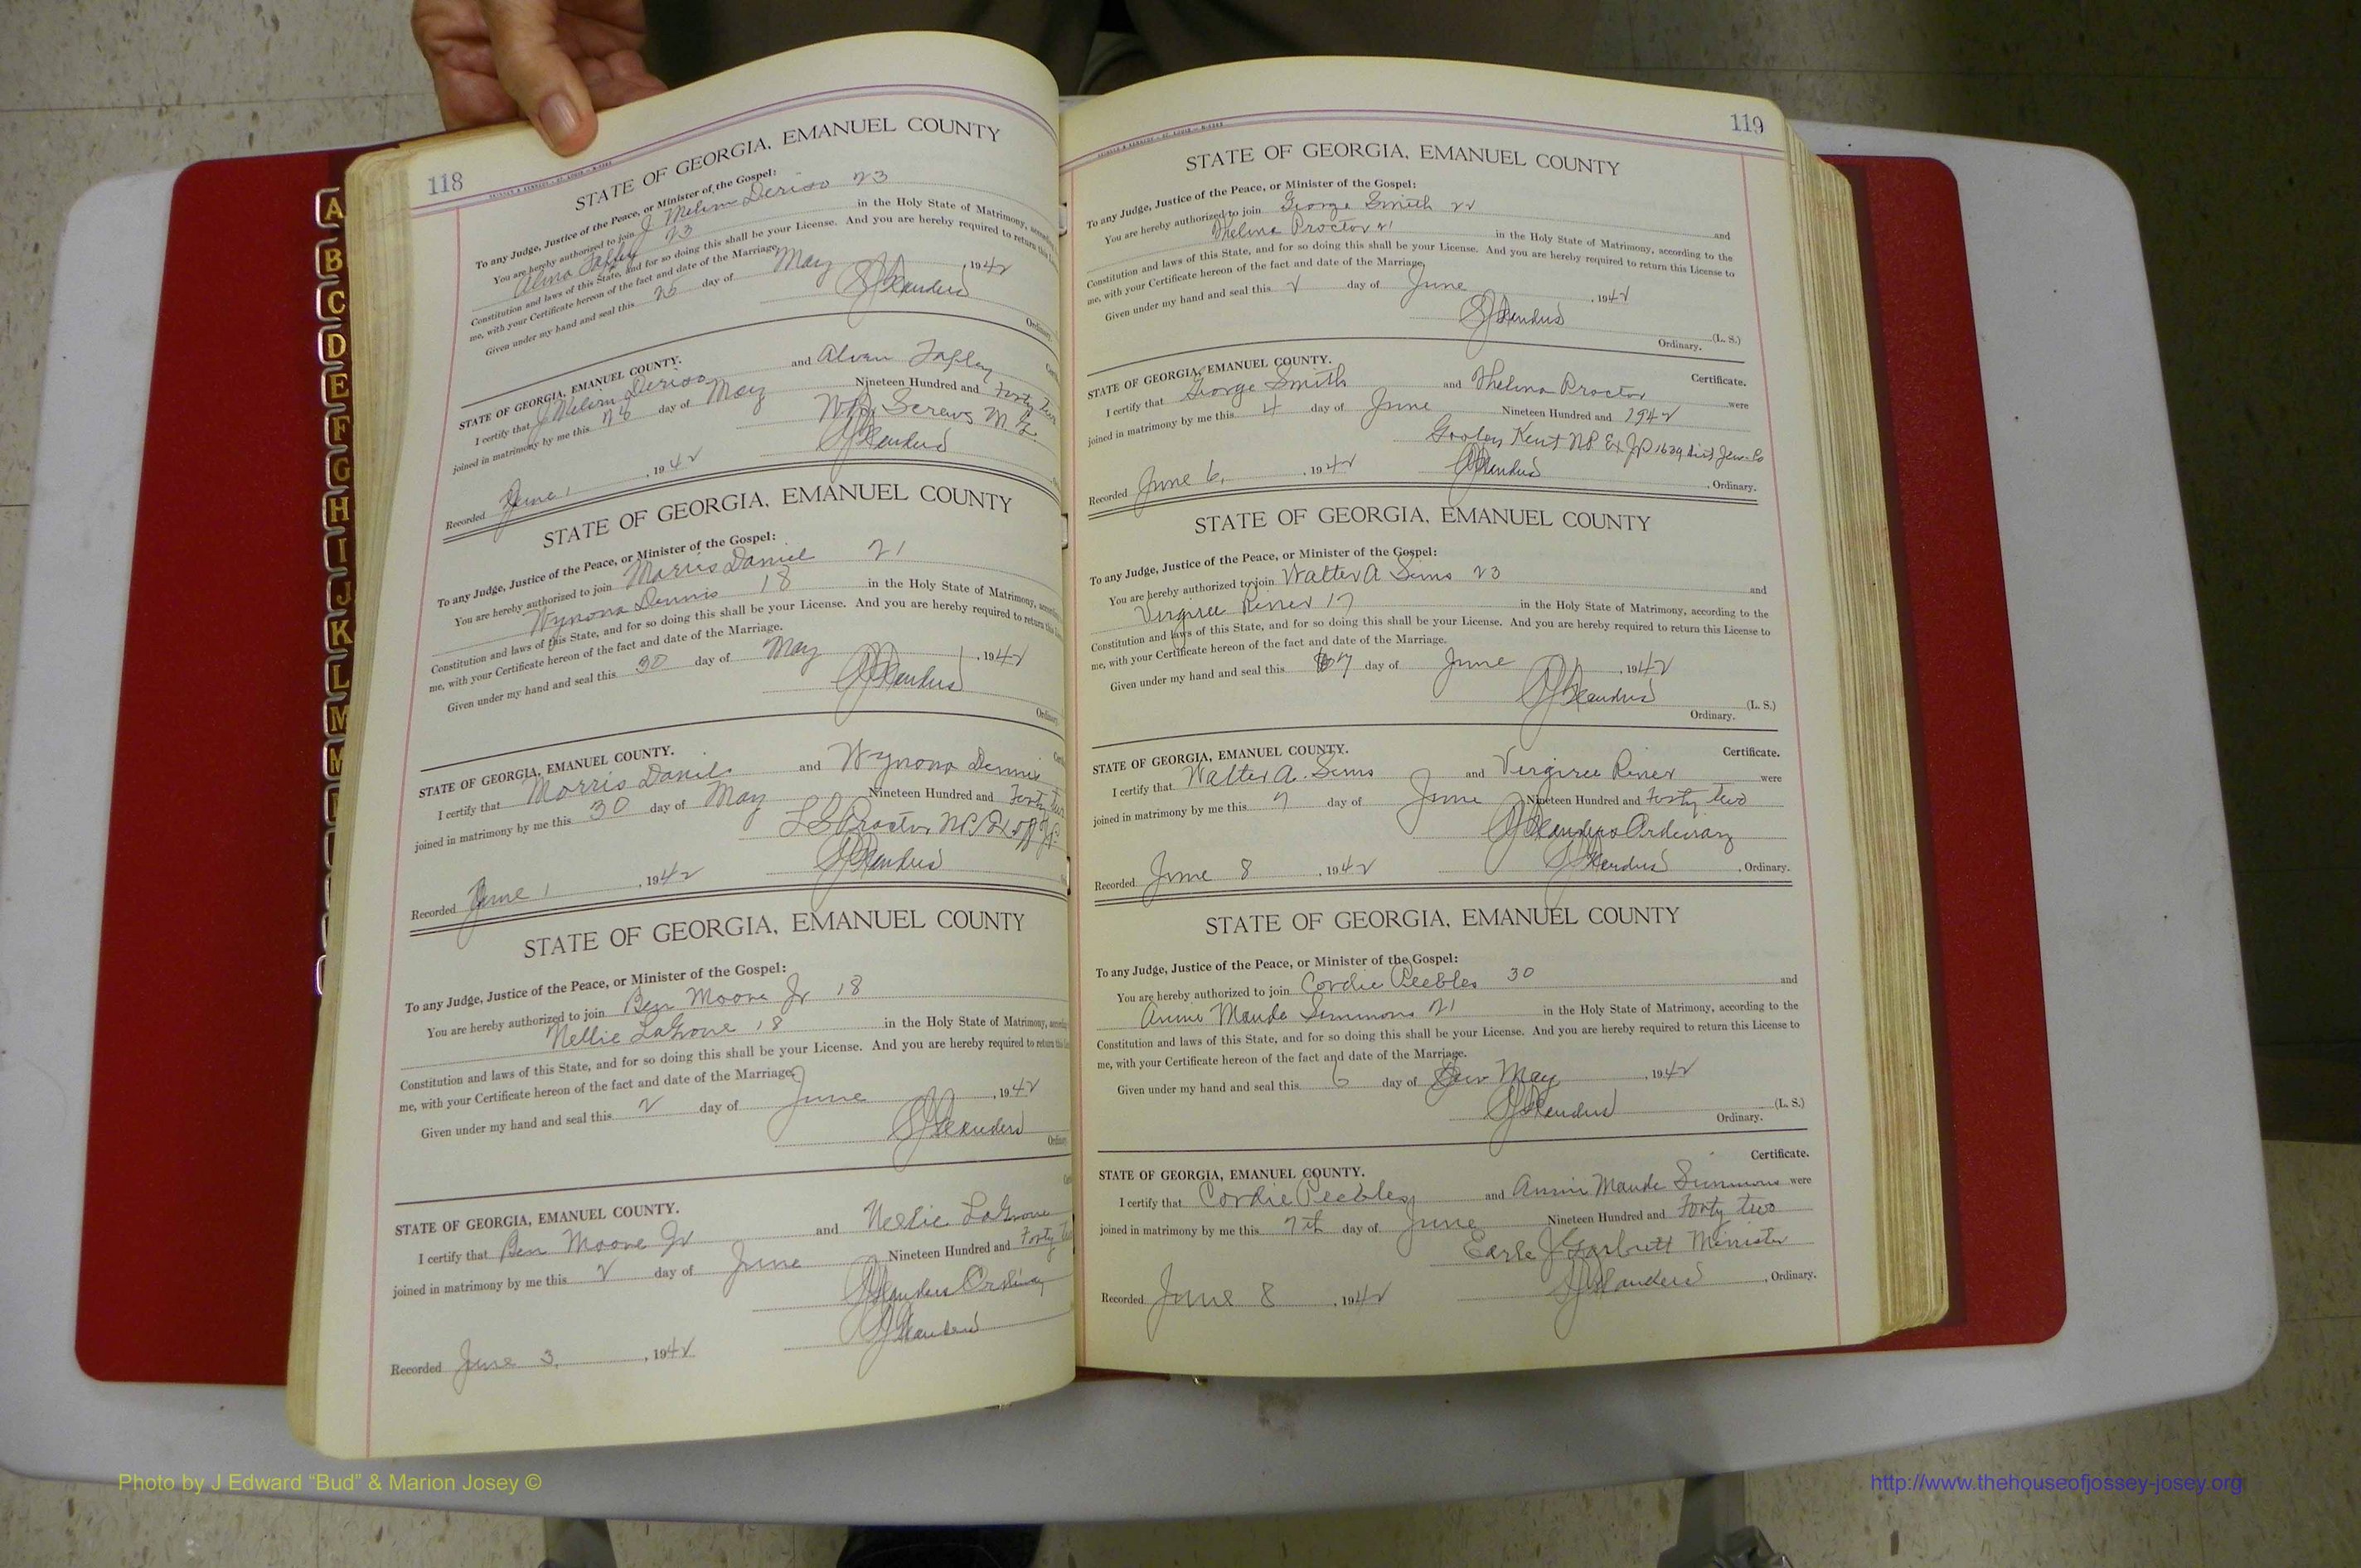 118
STATE OF GEORGIA, EMANUEL COUNTY
To any Judge, Justice of the Peace, or Minister of the Gospel:
You are hereby authorized to join J Deriso 23
23 in the Holy State of Matrimony,
Constitution and laws of this State, and for so doing this shall be your License. And you are hereby required to return this
me, with your Certificate hereon of the fact and date of the Marriage.
Given under my hand and seal this day of May , 1942
Ordinary.
STATE OF GEORGIA, EMANUEL COUNTY.
I certify that J Deriso and
joined in matrimony by me this day of May Nineteen Hundred and Forty Two
Screws M. G.
Recorded June 1 , 1942
STATE OF GEORGIA, EMANUEL COUNTY
To any Judge, Justice of the Peace, or Minister of the Gospel:
You are hereby authorized to join Morris Daniel 21
Wynona Dennis 18 in the Holy State of Matrimony,
Constitution and laws of this State, and for so doing this shall be your License. And you are hereby required to return this
me, with your Certificate hereon of the fact and date of the Marriage.
Given under my hand and seal this 30 day of May , 1942
Ordinary
STATE OF GEORGIA, EMANUEL COUNTY.
I certify that Morris Daniel and Wynona Dennis
joined in matrimony by me this 30 day of May Nineteen Hundred and Forty Two
Proctor
Recorded June 1 , 1942
STATE OF GEORGIA, EMANUEL COUNTY
To any Judge, Justice of the Peace, or Minister of the Gospel:
You are hereby authorized to join Ben Moore Jr 18
Nellie 18 in the Holy State of Matrimony,
Constitution and laws of this State, and for so doing this shall be your License. And you are hereby required to return this
me, with your Certificate hereon of the fact and date of the Marriage.
Given under my hand and seal this 2 day of June , 1942
Ordinary
STATE OF GEORGIA, EMANUEL COUNTY.
I certify that Ben Moore Jr and Nellie
joined in matrimony by me this 2 day of June Nineteen Hundred and Forty
Recorded June 3, , 1942
119
STATE OF GEORGIA, EMANUEL COUNTY
To any Judge, Justice of the Peace, or Minister of the Gospel:
You are hereby authorized to join George Smith 22 and
Thelma Proctor 21 in the Holy State of Matrimony, according to the
Constitution and laws of this State, and for so doing this shall be your License. And you are hereby required to return this License to
me, with your Certificate hereon of the fact and date of the Marriage.
Given under my hand and seal this 2 day of June , 1942
(L. S.)
Ordinary.
STATE OF GEORGIA, EMANUEL COUNTY. Certificate.
I certify that George Smith and Thelma Proctor were
joined in matrimony by me this 4 day of June Nineteen Hundred and 1942
Kent NP Ex JP
Recorded June 6, , 1942 , Ordinary.
STATE OF GEORGIA, EMANUEL COUNTY
To any Judge, Justice of the Peace, or Minister of the Gospel:
You are hereby authorized to join Walter A Sims 23 and
Riner 17 in the Holy State of Matrimony, according to the
Constitution and laws of this State, and for so doing this shall be your License. And you are hereby required to return this License to
me, with your Certificate hereon of the fact and date of the Marriage.
Given under my hand and seal this 7 day of June , 1942
(L. S.)
Ordinary.
STATE OF GEORGIA, EMANUEL COUNTY. Certificate.
I certify that Walter A. Sims and Riner were
joined in matrimony by me this 7 day of June Nineteen Hundred and Forty two
Ordinary
Recorded June 8 , 1942 , Ordinary.
STATE OF GEORGIA, EMANUEL COUNTY
To any Judge, Justice of the Peace, or Minister of the Gospel:
You are hereby authorized to join Cordie Peebles 30 and
Annie Maude Simmons 21 in the Holy State of Matrimony, according to the
Constitution and laws of this State, and for so doing this shall be your License. And you are hereby required to return this License to
me, with your Certificate hereon of the fact and date of the Marriage.
Given under my hand and seal this 6 day of May , 1942
(L. S.)
Ordinary.
STATE OF GEORGIA, EMANUEL COUNTY. Certificate.
I certify that Cordie Peebles and Annie Maude Simmons were
joined in matrimony by me this 7th day of June Nineteen Hundred and Forty two
Earle J Garbutt Minister
Recorded June 8 , 1942 , Ordinary.
A
B
C
D
E
F
G
H
I
J
K
L
M
Photo by J Edward “Bud” & Marion Josey ©
http://www.thehouseofjossey-josey.org